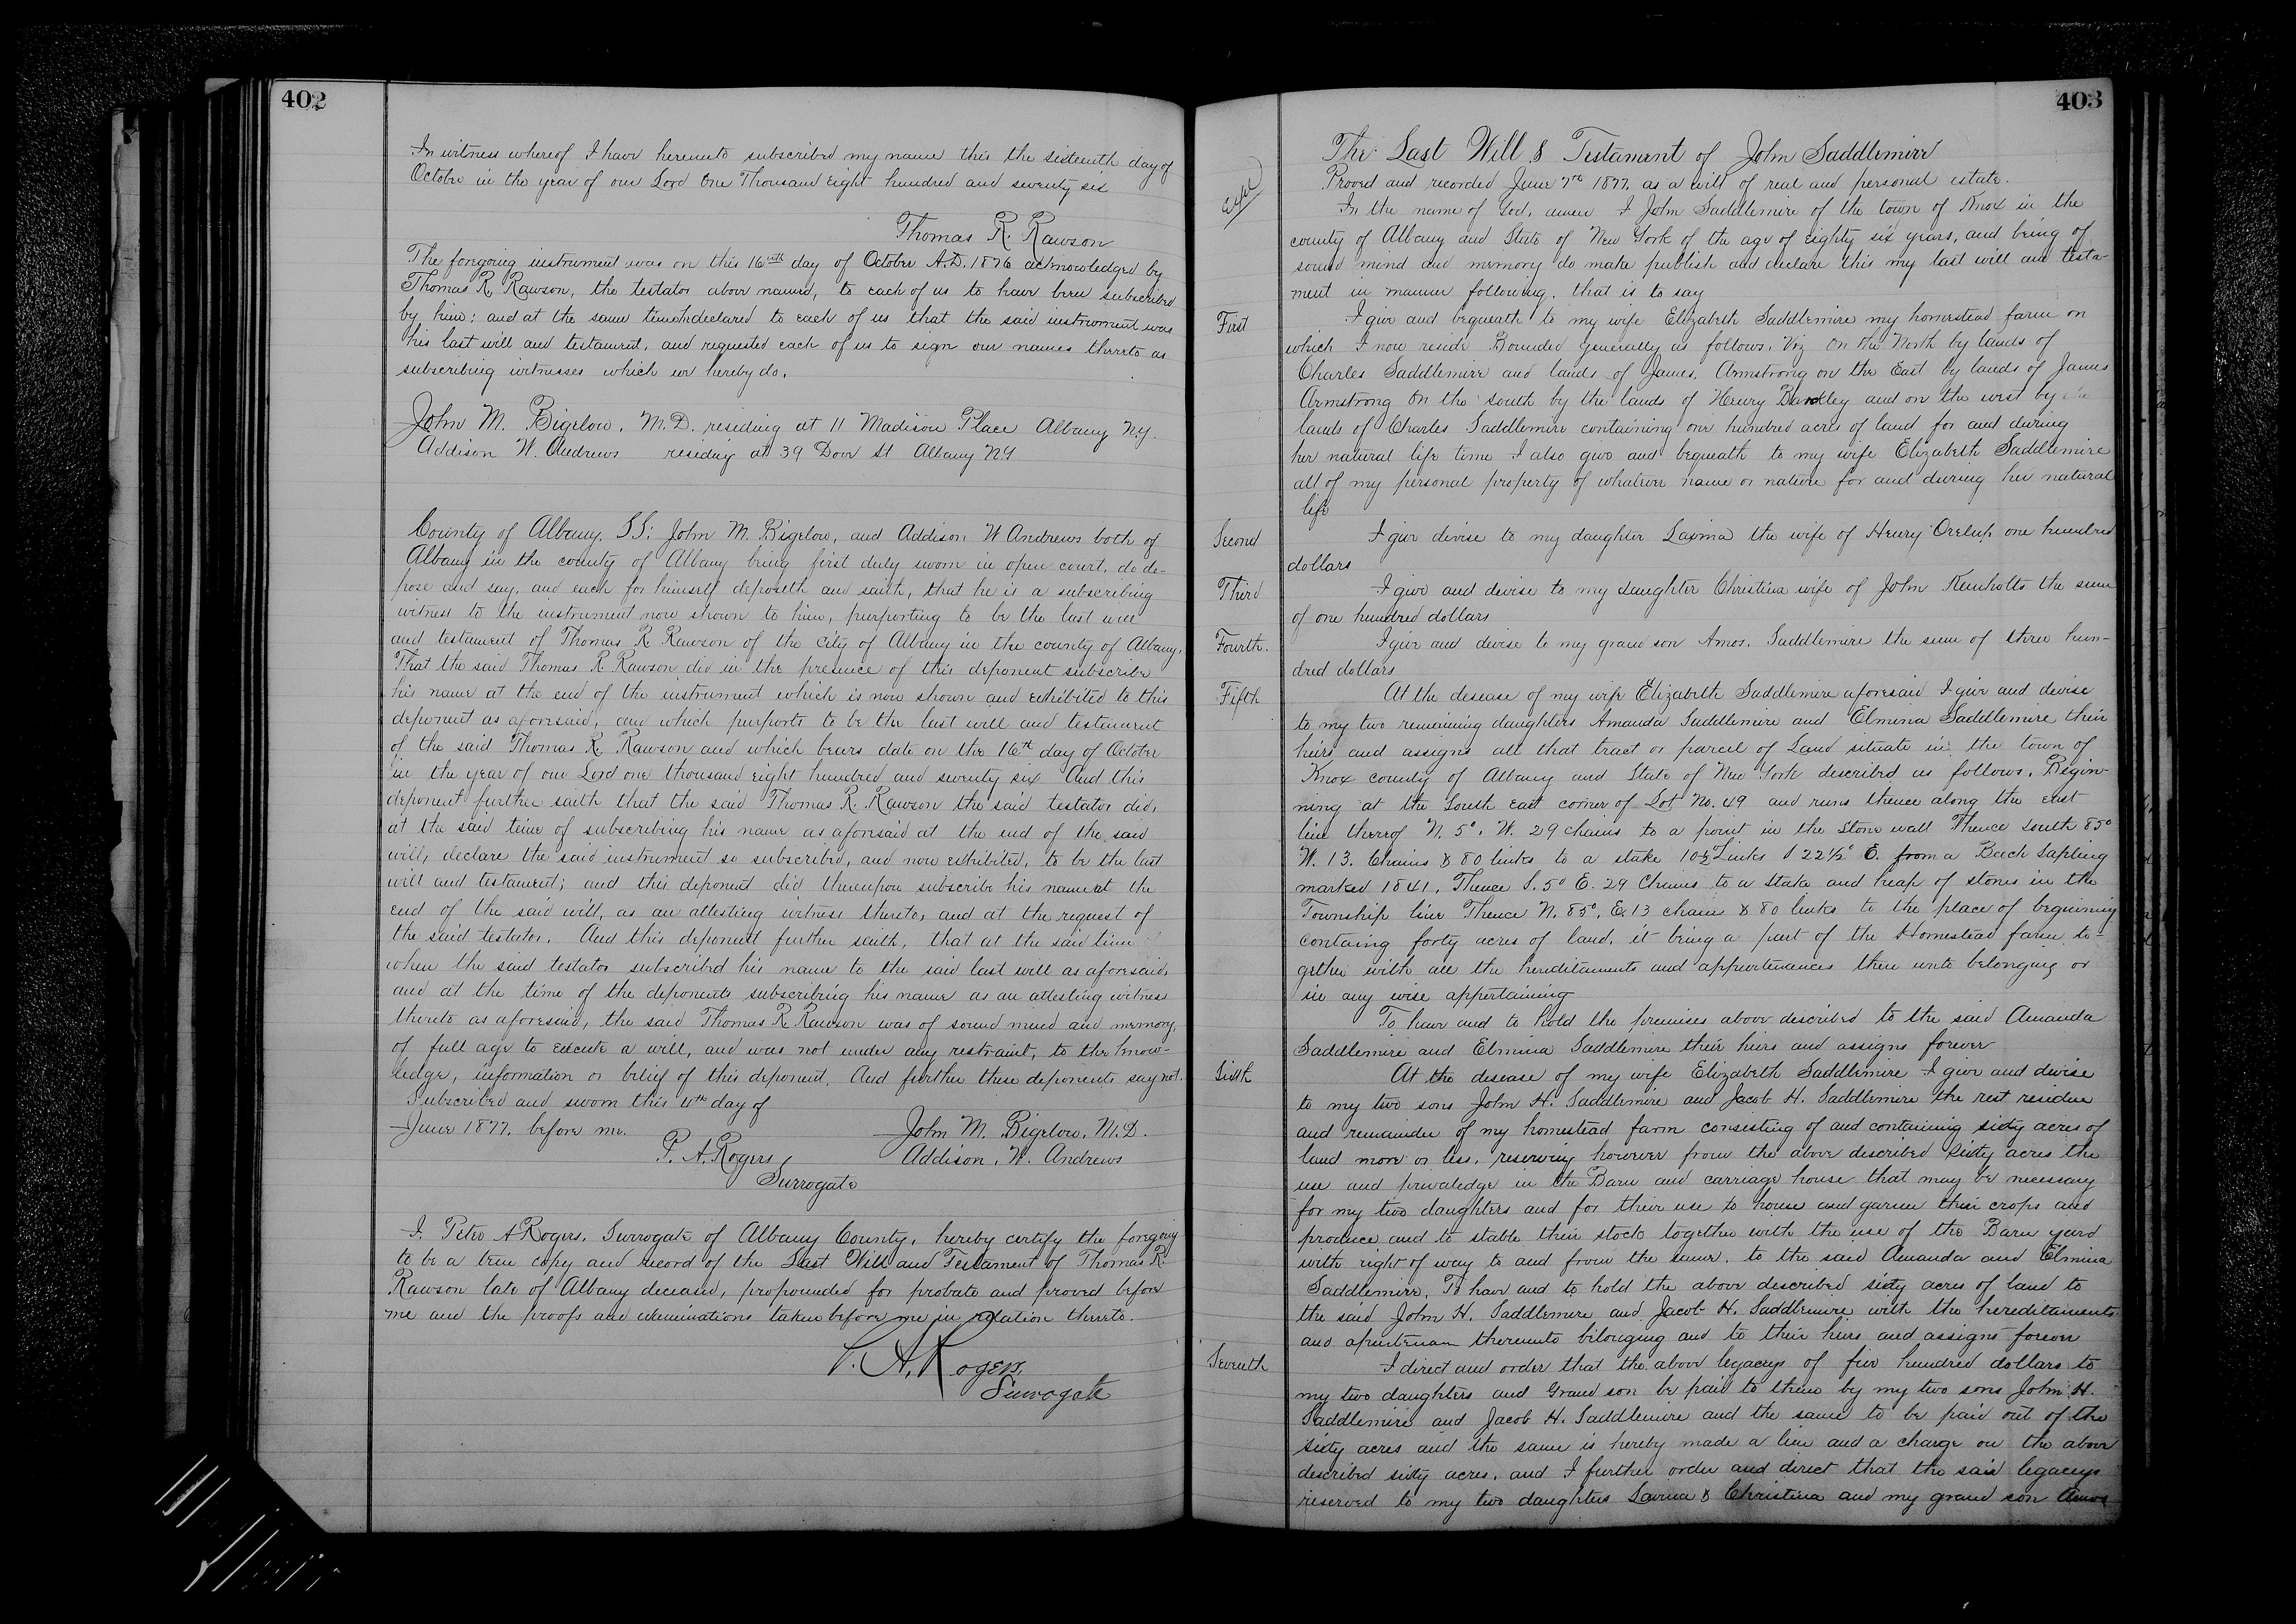 402
In witness whereof I have hereunto subscribed my name this the sixteenth day of
October in the year of our Lord One Thousand Eight hundred and seventy six
Thomas R. Rawson
The foregoing instrument was on this 16th day of October A.D. 1876 acknowledged by
Thomas R. Rawson, the testator above named, to each of us to have been subscribed
by him: and at the same time declared to each of us that the said instrument was
his last will and testament, and requested each of us to sign our names thereto as
subscribing witnesses which we hereby do.
John M. Bigelow, M.D. residing at 11 Madison Place Albany N.Y.
Addison W. Andrews residing at 39 Dove St Albany N.Y
County of Albany, SS: John M. Bigelow, and Addison W Andrews both of
Albany in the county of Albany being first duly sworn in open court, do de-
pose and say, and each for himself deposeth and saith, that he is a subscribing
witness to the instrument now shown to him, purporting to be the last will
and testament of Thomas R. Rawson of the city of Albany in the county of Albany.
That the said Thomas R. Rawson did in the presence of this deponent subscribe
his name at the end of the instrument which is now shown and exhibited to this
deponent as aforesaid, and which purports to be the last will and testament
of the said Thomas R. Rawson and which bears date on the 16th day of October
in the year of our Lord one thousand eight hundred and seventy six And this
deponent further saith that the said Thomas R. Rawson the said testator did,
at the said time of subscribing his name as aforesaid at the end of the said
will, declare the said instrument so subscribed, and now exhibited, to be the last
will and testament; and this deponent did thereupon subscribe his name at the
end of the said will, as an attesting witness thereto, and at the request of
the said testator. And this deponent further saith, that at the said time
when the said testator subscribed his name to the said last will as aforesaid,
and at the time of the deponents subscribing his name as an attesting witness
thereto as aforesaid, the said Thomas R. Rawson was of sound mind and memory,
of full age to execute a will, and was not under any restraint, to the know-
ledge, information or belief of this deponent. And further these deponents say not.
Subscribed and sworn this day of
June 1877. before me. John M. Bigelow, M.D.
P. A. Rogers Addison. W. Andrews
Surrogate
I, Peter A Rogers, Surrogate of Albany County, hereby certify the foregoing
to be a true copy and record of the Last Will and Testament of Thomas R.
Rawson late of Albany deceased, propounded for probate and proved before
me and the proofs and examinations taken before me in relation thereto.
P. A. Rogers,
Surrogate
403
The Last Will & Testament of John Saddlemire
Proved and recorded June 7th 1877, as a will of real and personal estate.
In the name of God, amen I John Saddlemire of the town of Knox in the
county of Albany and State of New York of the age of eighty six years, and being of
sound mind and memory do make publish and declare this my last will and testa-
ment in manner following. that is to say
First I give and bequeath to my wife Elizabeth Saddlemire my homestead farm on
which I now reside Bounded generally as follows. Viz On the North by lands of
Charles Saddlemire and lands of James. Armstrong on the East by lands of James
Armstrong On the south by the lands of Henry Barckley and on the west by the
lands of Charles Saddlemire containing one hundred acres of land for and during
her natural life time I also give and bequeath to my wife Elizabeth Saddlemire
all of my personal property of whatever name or nature for and during her natural
life
Second I give devise to my daughter Lavina the wife of Henry Orelup one hundred
dollars
Third I give and devise to my daughter Christina wife of John Kenholts the sum
of one hundred dollars
Fourth. I give and devise to my grand son Amos. Saddlemire the sum of three hun-
dred dollars
Fifth At the desease of my wife Elizabeth Saddlemire aforesaid I give and devise
to my two remaining daughters Amanda Saddlemire and Elmina Saddlemire their
heirs and assigns all that tract or parcel of Land situate in the town of
Knox county of Albany and State of New York described as follows. Begin-
ning at the South east corner of Lot No. 49 and runs thence along the east
line thereof N. 5°. W. 29 chains to a point in the Stone wall Thence South 85°
W. 13. Chains & 80 links to a stake 10½ Links S 22½° E. from a Beech Sapling
marked 1841. Thence S. 5° E. 29 Chains to a Stake and heap of stones in the
Township line Thence N. 85°. E. 13 chains & 80 links to the place of beginning
containg forty acres of land. it being a part of the Homestead farm to-
gether with all the hereditaments and appurtenances there unto belonging or
in any wise appertaining
To have and to hold the premises above described to the said Amanda
Saddlemire and Elmina Saddlemire their heirs and assigns forever
Sixth At the desease of my wife Elizabeth Saddlemire I give and devise
to my two sons John H. Saddlemire and Jacob H. Saddlemire the rest residue
and remainder of my homestead farm consisting of and containing sixty acres of
land more or less, reserving however from the above described sixty acres the
use and privaledge in the Barn and carriage house that may be necessary
for my two daughters and for their use to house and garner their crops and
produce and to stable their stock together with the use of the Barn yard
with right of way to and from the same. to the said Amanda and Elmina
Saddlemire. To have and to hold the above described sixty acres of land to
the said John H. Saddlemire and Jacob H. Saddlemire with the hereditaments
and thereunto belonging and to their heirs and assigns forever
Seventh I direct and order that the above legacys of five hundred dollars to
my two daughters and Grand son be paid to them by my two sons John H.
Saddlemire and Jacob H. Saddlemire and the same to be paid out of the
sixty acres and the same is hereby made a lien and a charge on the above
described sixty acres, and I further order and direct that the said legacys
reserved to my two daughters Lavina & Christina and my grand son Amos